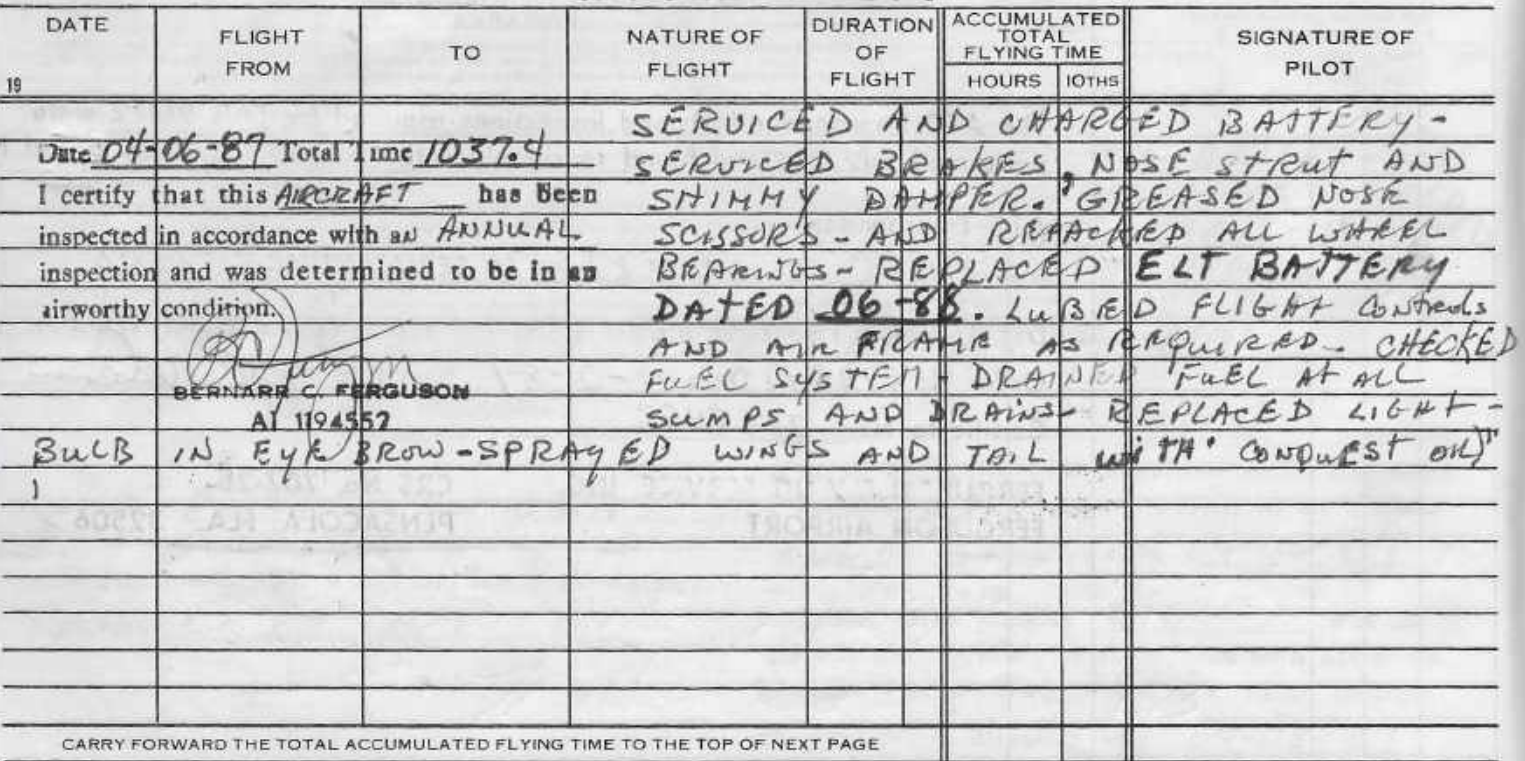 DATE FLIGHT FROM TO NATURE OF FLIGHT DURATION OF FLIGHT ACCUMULATED TOTAL FLYING TIME HOURS 10THS SIGNATURE OF PILOT
19
Date 04-06-87 Total Time 1037.4
I certify that this AIRCRAFT has been
inspected in accordance with an ANNUAL
inspection and was determined to be in an
airworthy condition.
BERNARR C. FERGUSON
AI 1194557
SERVICED AND CHARGED BATTERY -
SERVICED BRAKES, NOSE STRUT AND
SHIMMY DAMPER. GREASED NOSE
SCISSORS - AND REPACKED ALL WHEEL
BEARINGS - REPLACED ELT BATTERY
DATED 06-88. LUBED FLIGHT CONTROLS
AND AIR FRAME AS REQUIRED. CHECKED
FUEL SYSTEM - DRAINED FUEL AT ALL
SUMPS AND DRAINS - REPLACED LIGHT -
BULB IN EYE BROW - SPRAYED WINGS AND TAIL WITH "CONQUEST OIL"
CARRY FORWARD THE TOTAL ACCUMULATED FLYING TIME TO THE TOP OF NEXT PAGE